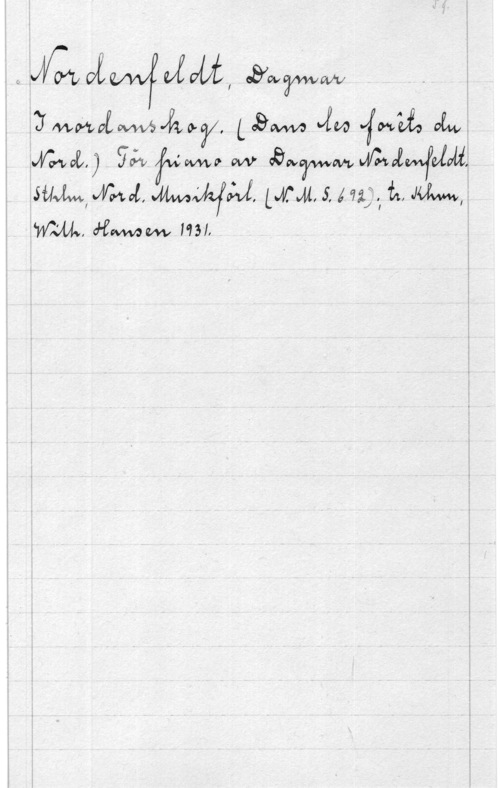 Nordenfeldt, Dagmar
I nordanskog. (Dans les forêts du
Nord.) För piano av Dagmar Nordenfeldt.
Sthlm, Nord. Musikförl. (N.M.S. 692); tr. Khvn,
Wilh. Hansen 1931.